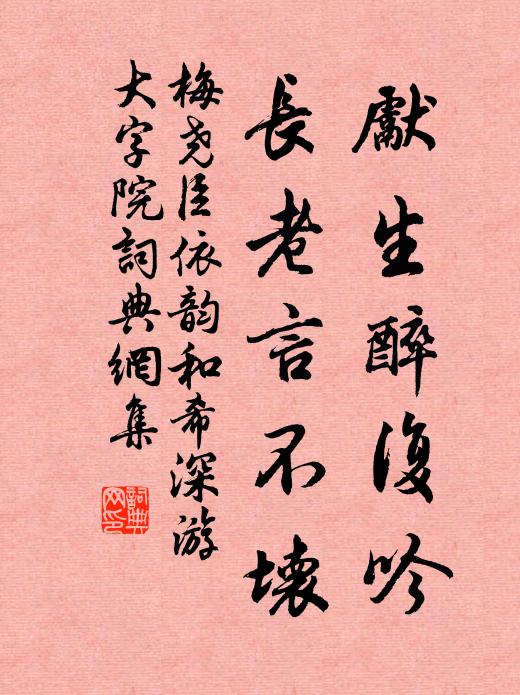 獻生醉復吟
長老言不壞
梅尧臣依韵和希深游
大字院詞典網集
詞典
网印